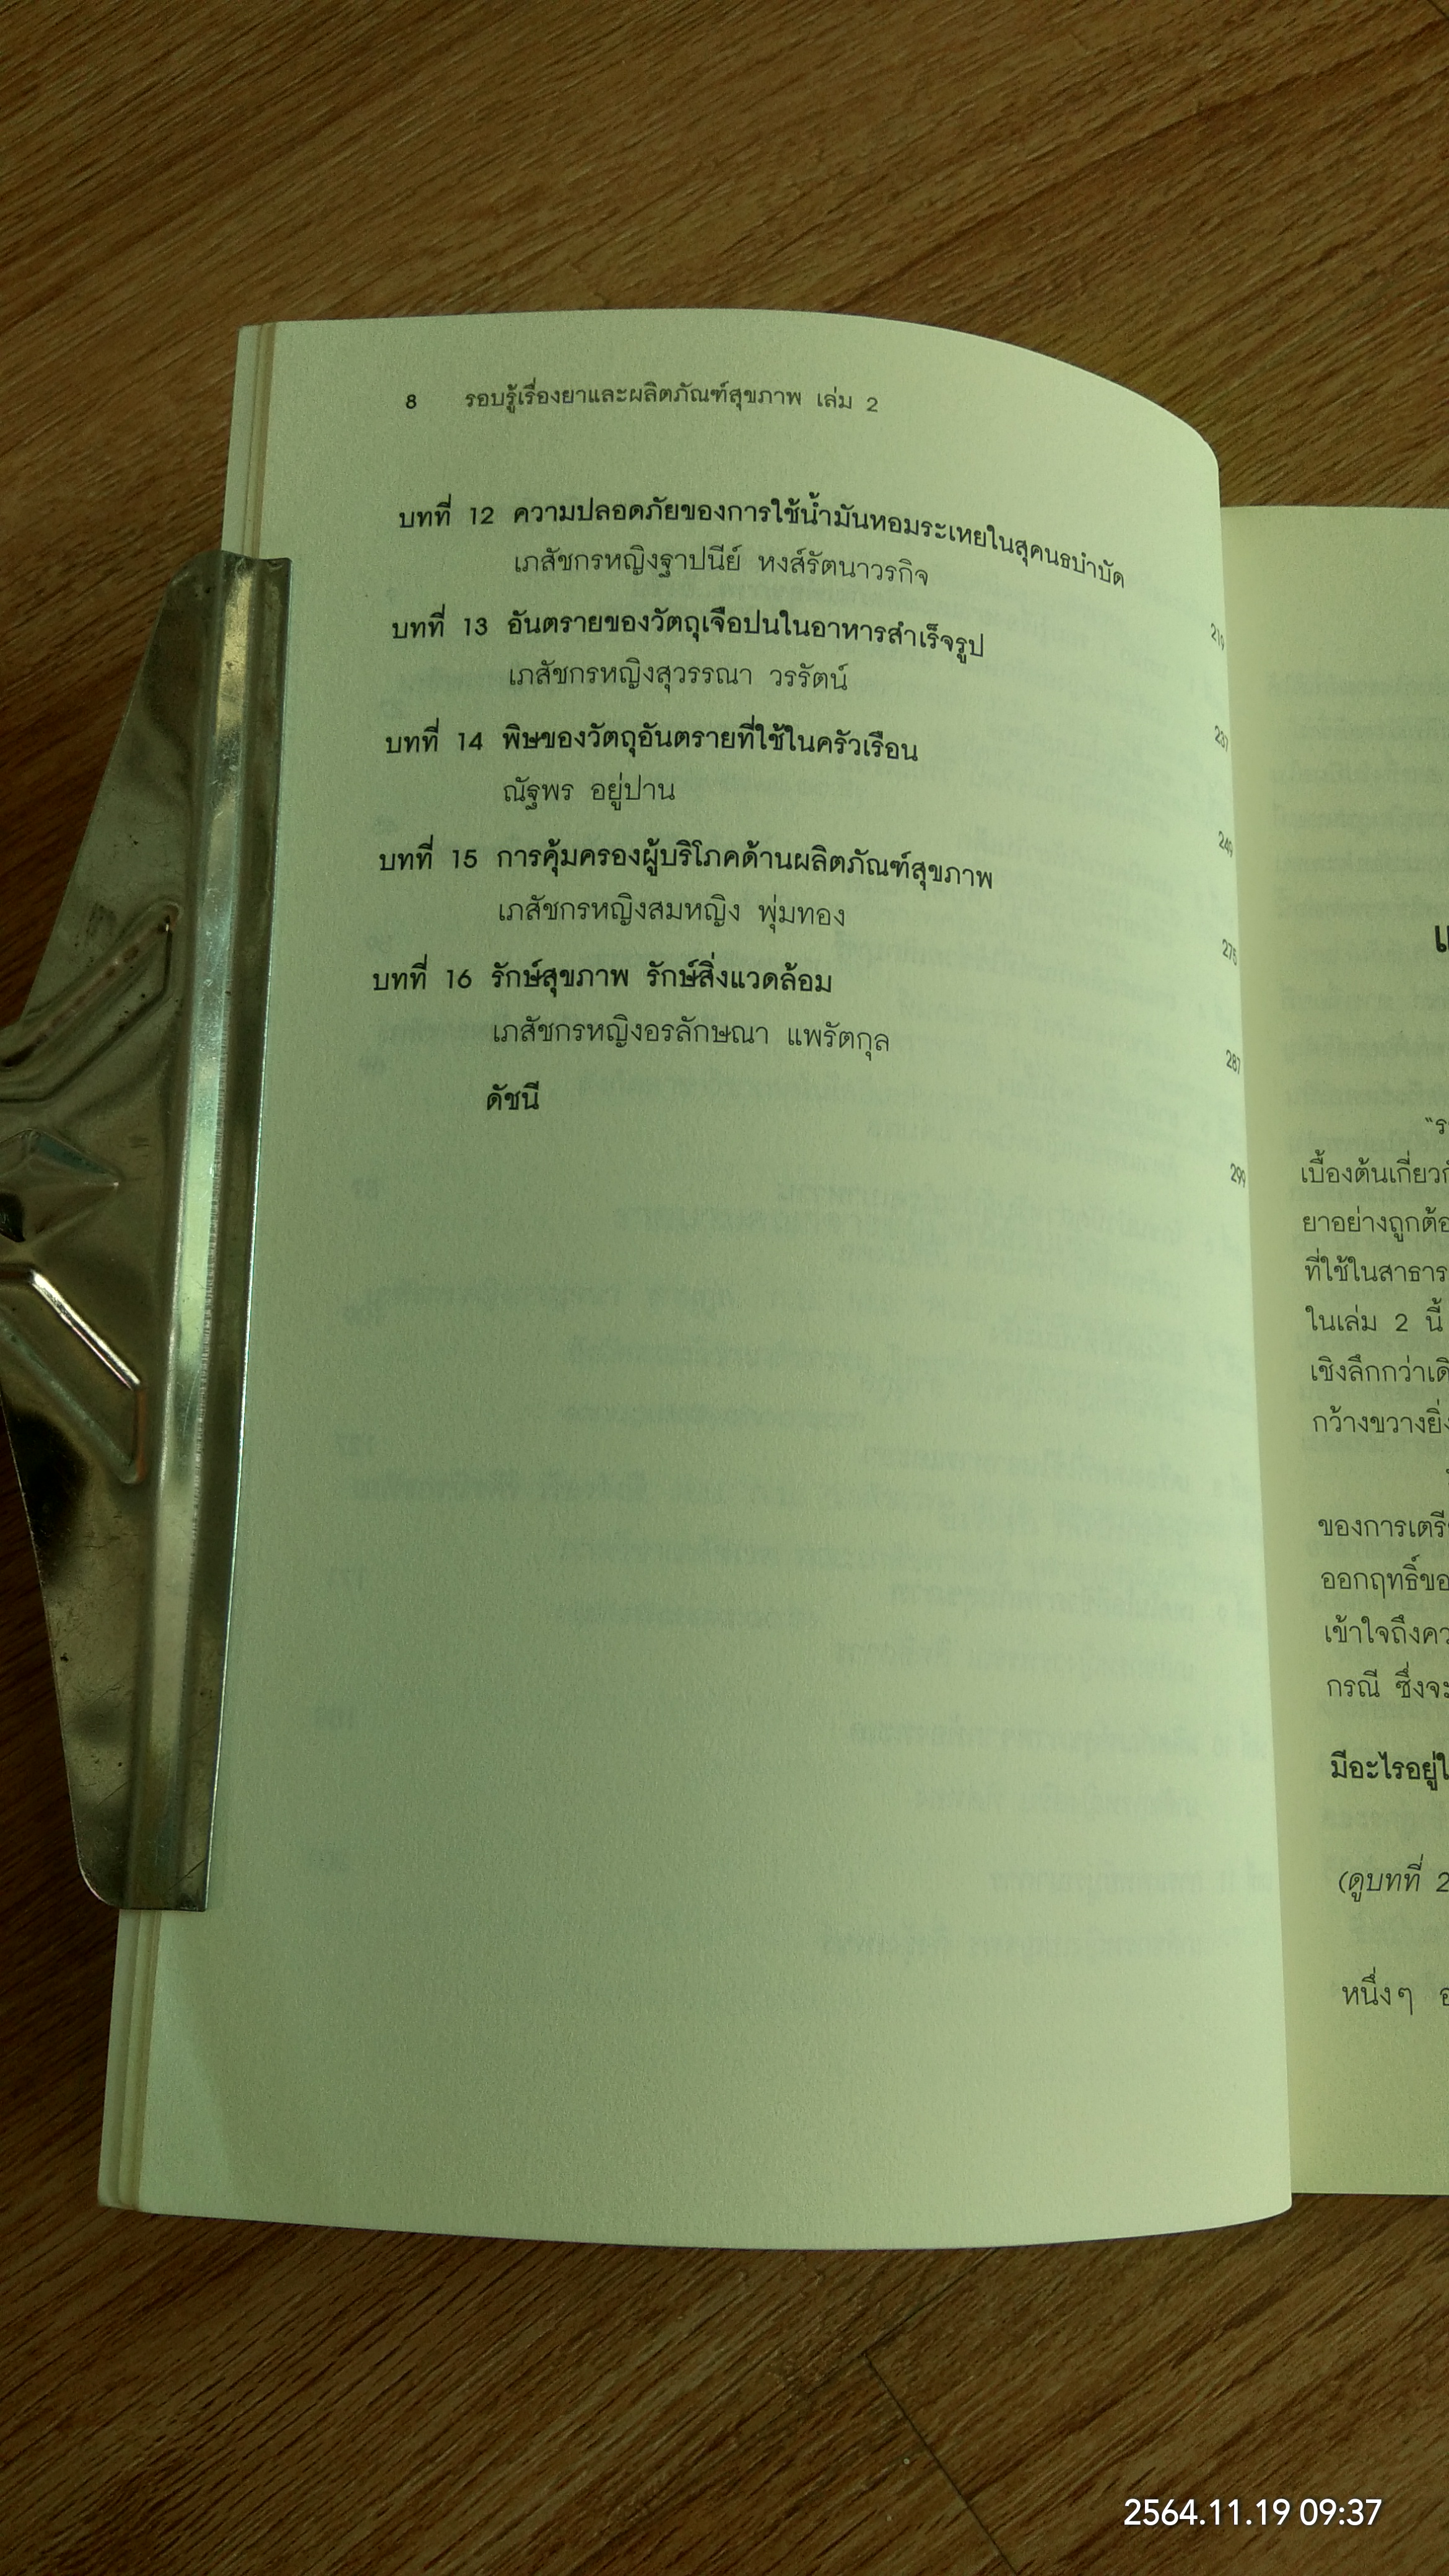 8 รอบรู้เรื่องยาและผลิตภัณฑ์สุขภาพ เล่ม 2
บทที่ 12 ความปลอดภัยของการใช้น้ำมันหอมระเหยในสุคนธบำบัด 219
เภสัชกรหญิงฐาปนีย์ หงส์รัตนาวรกิจ
บทที่ 13 อันตรายของวัตถุเจือปนในอาหารสำเร็จรูป 237
เภสัชกรหญิงสุวรรณา วรรัตน์
บทที่ 14 พิษของวัตถุอันตรายที่ใช้ในครัวเรือน 249
ณัฐพร อยู่ปาน
บทที่ 15 การคุ้มครองผู้บริโภคด้านผลิตภัณฑ์สุขภาพ 275
เภสัชกรหญิงสมหญิง พุ่มทอง
บทที่ 16 รักษ์สุขภาพ รักษ์สิ่งแวดล้อม 287
เภสัชกรหญิงอรลักษณา แพรัตกุล
ดัชนี 299
แ
"ร
เบื้องต้นเกี่ยวกั
ยาอย่างถูกต้อ
ที่ใช้ในสาธาร
ในเล่ม 2 นี้
เชิงลึกกว่าเดิ
กว้างขวางยิ่ง
ของการเตรี
ออกฤทธิ์ขอ
เข้าใจถึงคว
กรณี ซึ่งจะ
มีอะไรอยู่ใ
(ดูบทที่ 2
หนึ่งๆ อ
2564.11.19 09:37